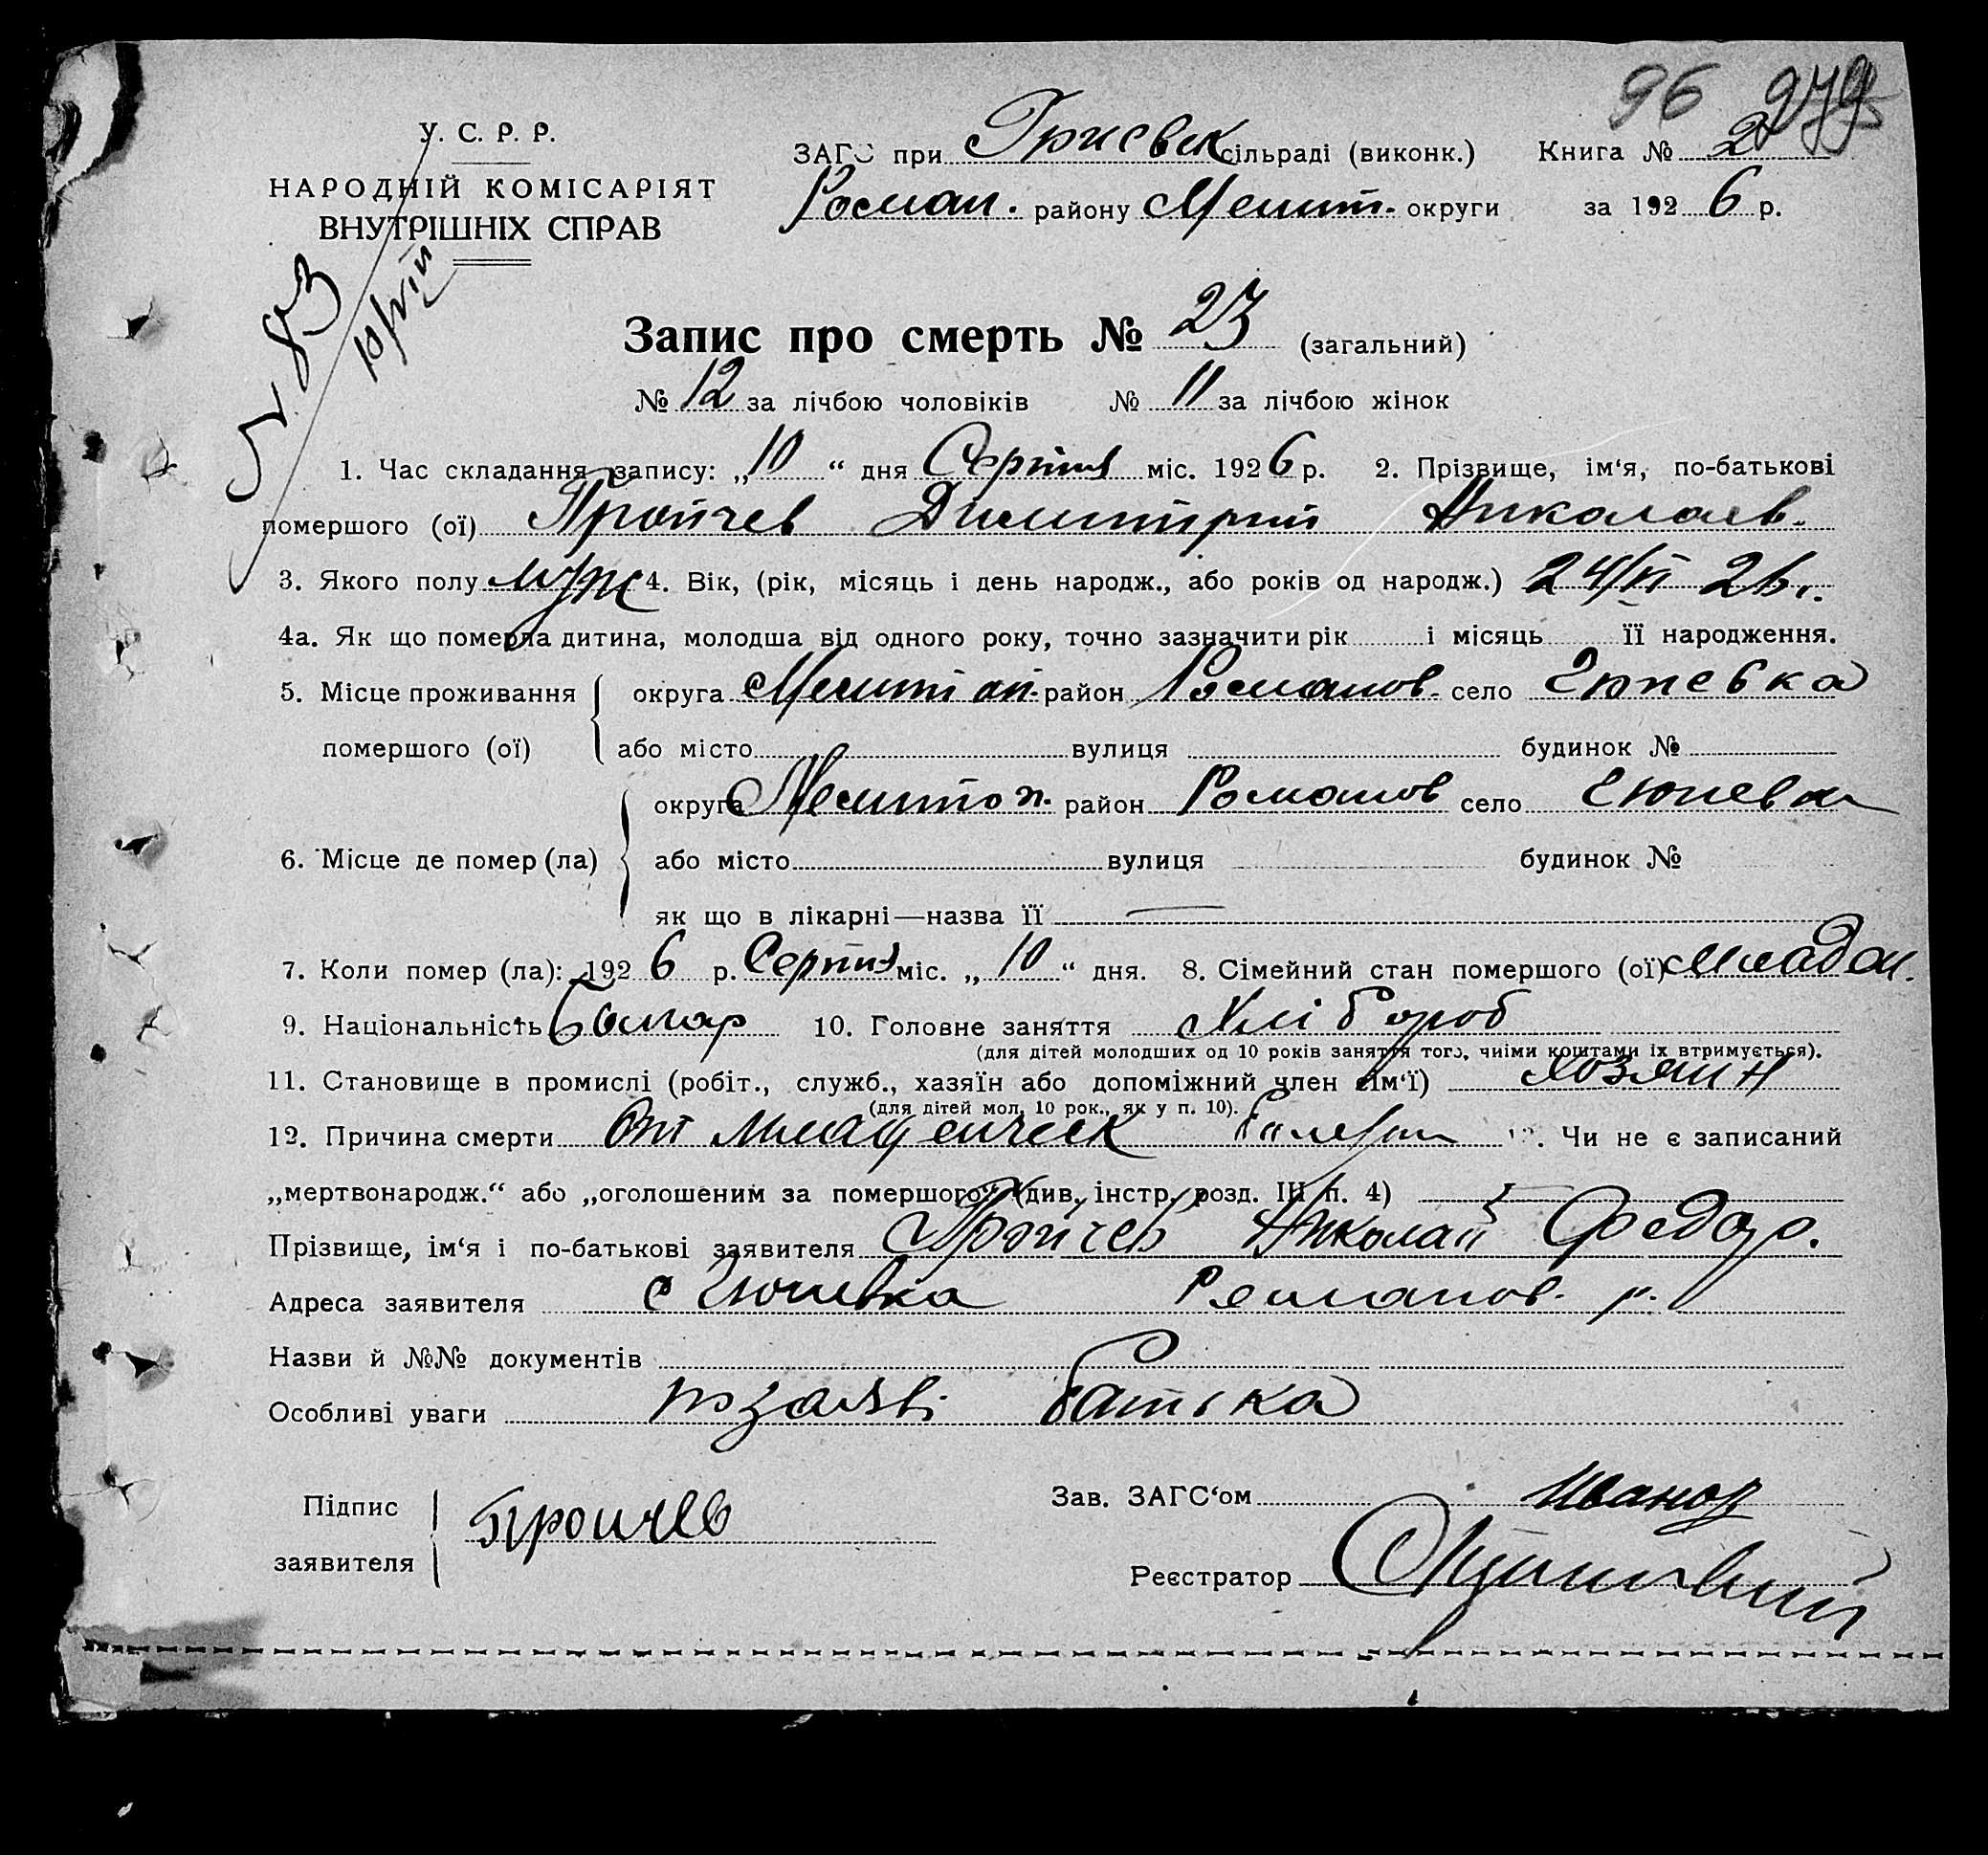 96 279
У. С. Р. Р.
НАРОДНІЙ КОМІСАРІЯТ
ВНУТРІШНІХ СПРАВ
ЗАГС при сільраді (виконк.) Книга № 2
Роман. району Мелит. округи за 1926 р.
83
Запис про смерть № 23 (загальний)
№ 12 за лічбою чоловіків № 11 за лічбою жінок
1. Час складання запису: „10“ дня Серпня міс. 1926 р. 2. Прізвище, ім‘я, по-батькові
помершого (ої) Пройчев Димитрий Николаев.
3. Якого полу муж 4. Вік, (рік, місяць і день народж., або років од народж.) 24/VI 26 г.
4а. Як що померла дитина, молодша від одного року, точно зазначити рік і місяць її народження.
5. Місце проживання округа Мелитоп. район Романов. село Гюневка
помершого (ої) або місто вулиця будинок №
округа Мелитоп. район Романов село Гюневка
6. Місце де помер (ла) або місто вулиця будинок №
як що в лікарні—назва її —
7. Коли помер (ла): 1926 р. Серпня міс. „10“ дня. 8. Сімейний стан помершого (ої) младен.
9. Національність болгар 10. Головне заняття Хлібороб
(для дітей молодших од 10 років заняття того, чиїми коштами їх втримується).
11. Становище в промислі (робіт., служб., хазяїн або допоміжний член сім‘ї) хозяин
(для дітей мол. 10 рок., як у п. 10).
12. Причина смерти От младенческ 13. Чи не є записаний
„мертвонародж.“ або „оголошеним за помершого“ (див. інстр. розд. III п. 4) —
Прізвище, ім‘я і по-батькові заявителя Пройчев Николай Федор.
Адреса заявителя с Гюневка Романов. р.
Назви й №№ документів
Особливі уваги по заяві батька
Підпис заявителя Пройчев
Зав. ЗАГС‘ом Иванов
Реєстратор